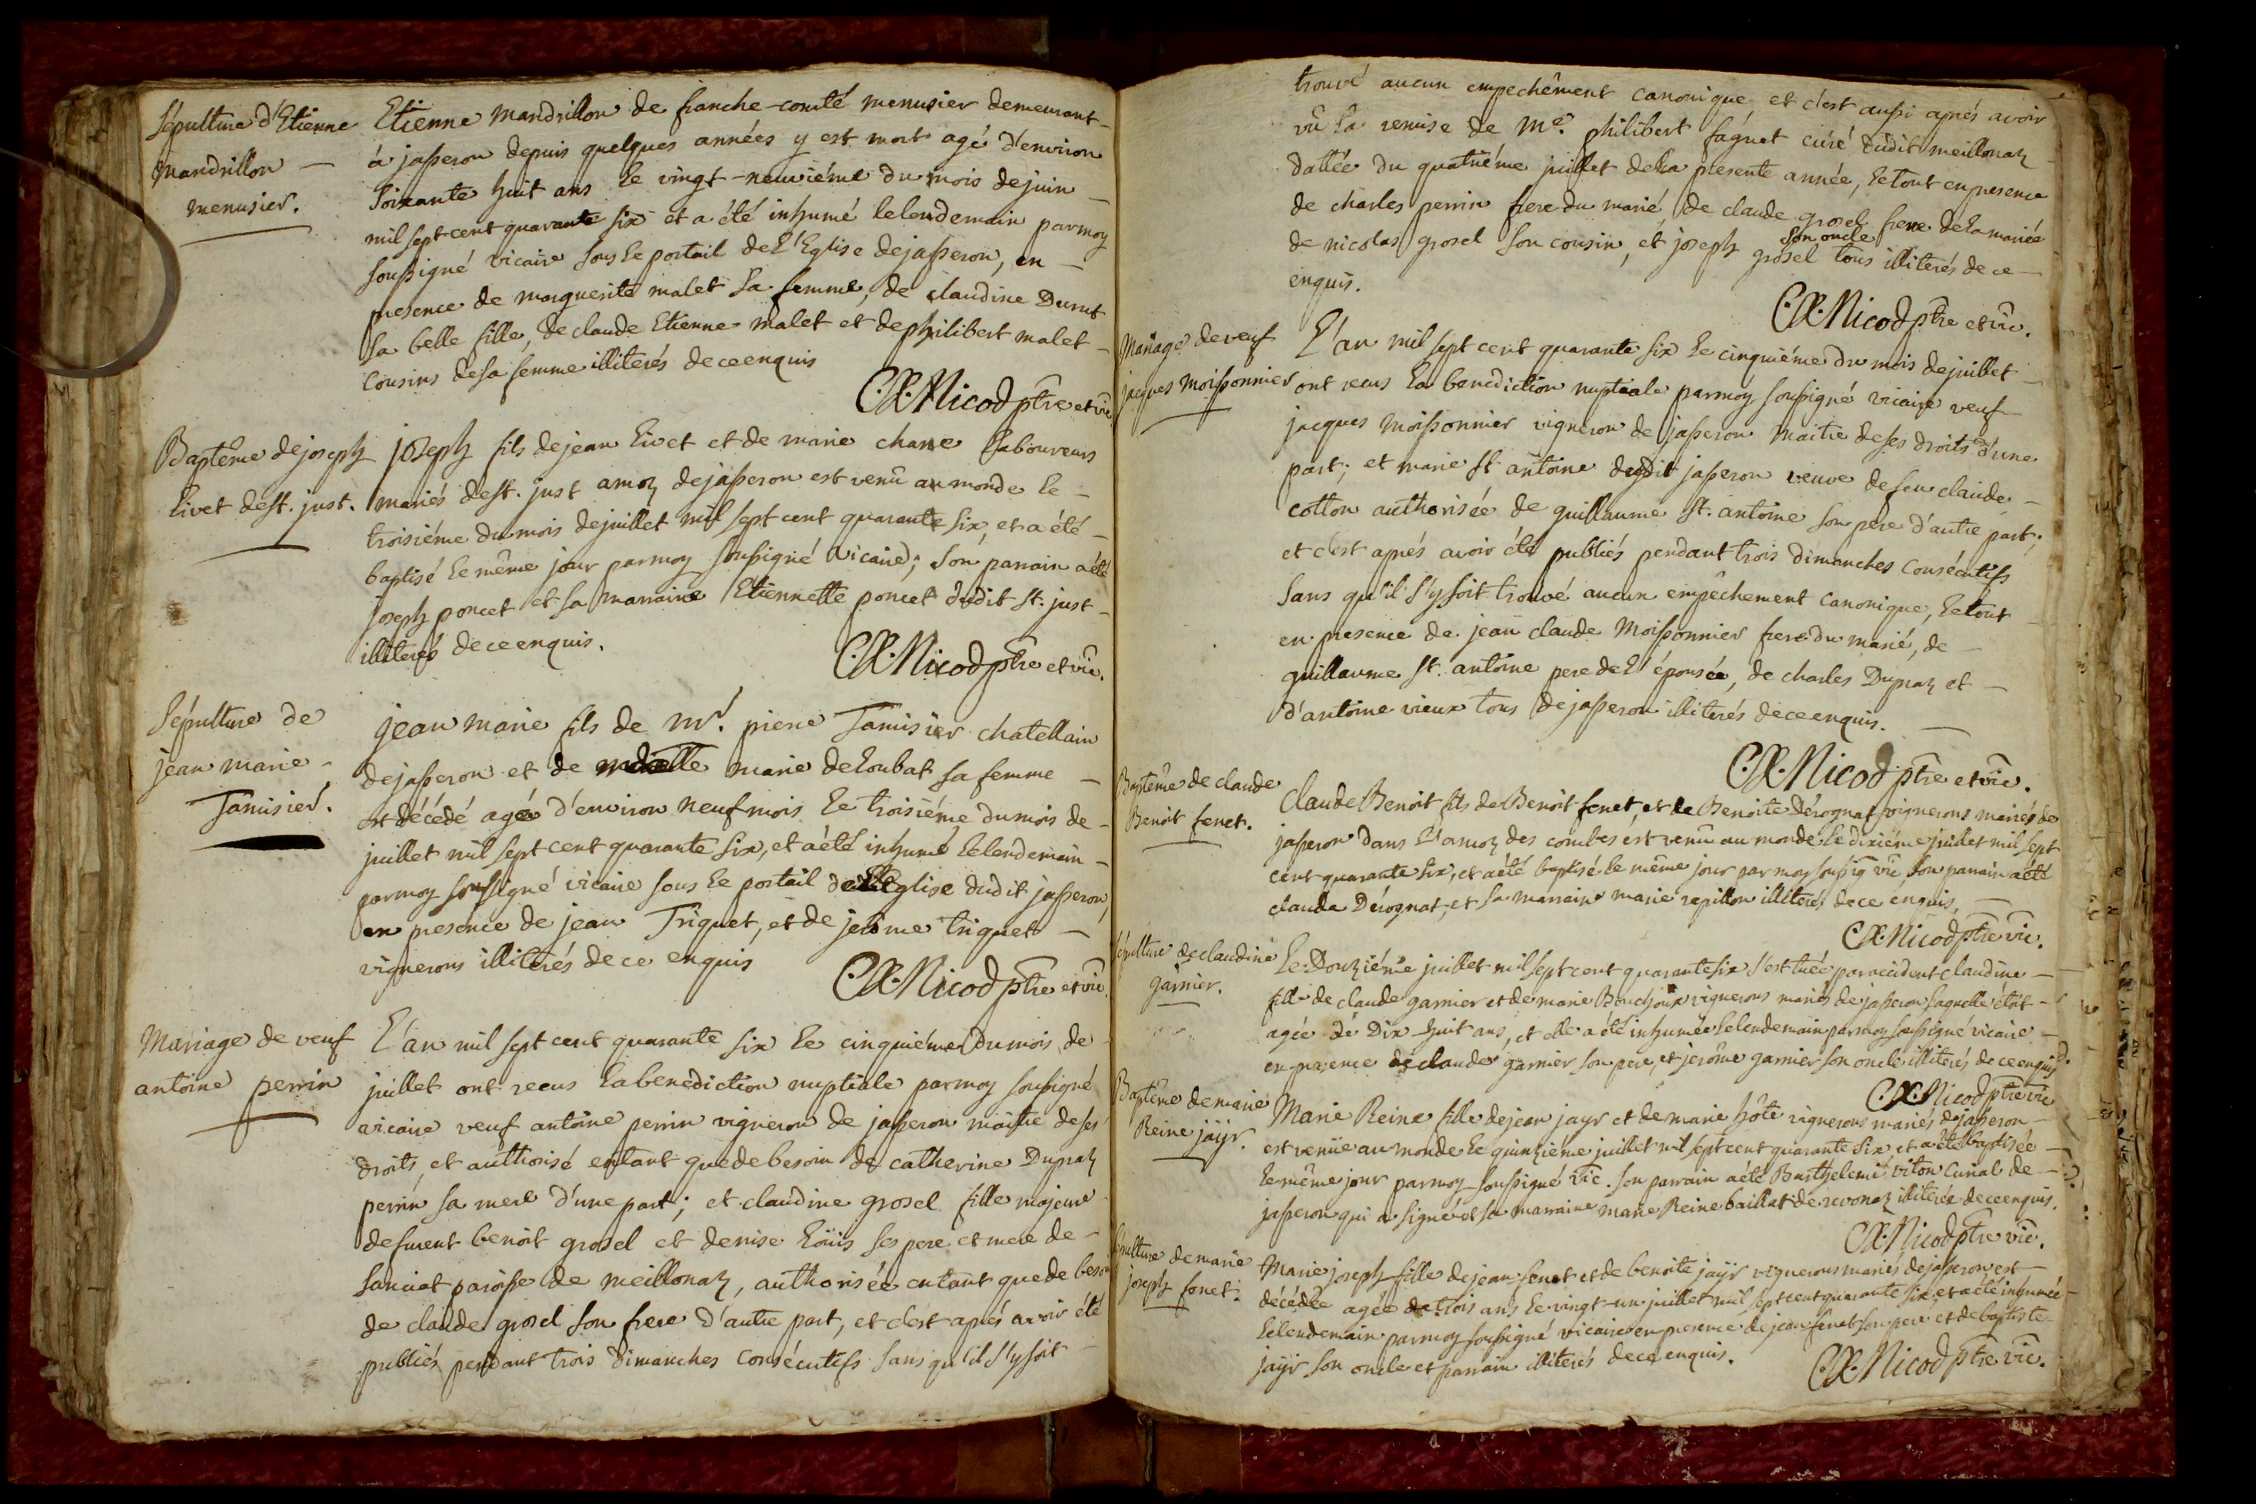 Sépulture d'Etienne
mandrillon —
menusier.
Etienne mandrillon de franche-comté menusier demeurant
à jasseron depuis quelques années y est mort agé d'environ
soixante huit ans le vingt-neuviéme du mois de juin
mil sept cent quarante six et a été inhumé le lendemain par moy
soussigné vicaire sous le portail de l'Eglise de jasseron, en
presence de marguerite malet sa femme, de claudine Durut
sa belle fille, de claude Etienne malet et de philibert malet
cousins de sa femme illiterés de ce enquis
C.X. Nicod ptre et vic
Baptême de joseph
Livet de st. just.
joseph fils de jean Livet et de marie charve laboureurs
mariés de st. just amoz de jasseron est venû au monde le
troisiéme du mois de juillet mil sept cent quarante six, et a été
baptisé le même jour par moy soussigné vicaire; son parrain a été
joseph poncet et sa marraine Etiennette poncet dudit st. just
illiterés de ce enquis.
C.X. Nicod ptre et vic.
Sépulture de
jean marie
Tamisier.
jean marie fils de mr. pierre Tamisier chatellain
de jasseron et de marie deloubat sa femme —
est décédé agé d'environ neuf mois le troisiéme du mois de
juillet mil sept cent quarante six, et a été inhumé le lendemain
par moy soussigné vicaire sous le portail de l'Eglise dudit jasseron,
en presence de jean Triquet, et de jerôme triquet —
vignerons illiterés de ce enquis
C.X. Nicod ptre et vic.
Mariage de veuf
antoine perrin
L'an mil sept cent quarante six le cinquiéme du mois de
juillet ont recus la benediction nuptiale par moy soussigné
vicaire veuf antoine perrin vigneron de jasseron maitre de ses
droits, et authorisé entant que de besoin de catherine Dupraz
perrin sa mere d'une part; et claudine grosel fille majeure
de furent benoit grosel et denise Loüis ses pere et mere de
sanciat paroisse de meillonaz, authorisée entant que de besoin
de claude grosel son frere d'autre part, et c'est aprés avoir été
publiés pendant trois dimanches consécutifs sans qu'il s'y soit
trouvé aucun empechêment canonique, et c'est aussi aprés avoir
vû la remise de Me. philibert fagnet curé dudit meillonaz
dattée du quatriéme juillet de la presente année, le tout en presence
de charles perrin frere du marié, de claude grosel frere de la mariée
de nicolas grosel son cousin, et joseph grosel son oncle tous illiterés de ce
enquis.
C.X. Nicod ptre et vic.
Mariage de veuf
jacques moissonnier
L'an mil sept cent quarante six le cinquiéme du mois de juillet
ont recus la benediction nuptiale par moy soussigné vicaire veuf
jacques moissonnier vigneron de jasseron maitre de ses droits d'une
part; et marie st. antoine dudit jasseron veuve de feu claude
cotton authorisée de guillaume st. antoine son pere d'autre part;
et c'est aprés avoir été publiés pendant trois dimanches consécutifs
sans qu'il s'y soit trouvé aucun empêchement canonique, le tout
en presence de jean claude moissonnier frere du marié, de
guillaume st. antoine pere de l'épousée, de charles Dupraz et
d'antoine vieux tous de jasseron illiterés de ce enquis.
C.X. Nicod ptre et vic.
Baptême de claude
Benoit fenet.
Claude Benoit fils de Benoit fenet, et de Benoite Dérognat vignerons mariés de
jasseron dans l'amoz des combes est venû au monde le dixiéme juillet mil sept
cent quarante six, et a été baptisé le même jour par moy soussig vic, son parrain a été
claude Dérognat, et sa marraine marie repillon illiterés de ce enquis.
C.X. Nicod ptre vic.
sépulture de claudine
garnier.
Le Douziéme juillet mil sept cent quarante six s'est tuée par accident claudine
fille de claude garnier et de marie Bouchoux vignerons mariés de jasseron laquelle étoit
agée de Dix-huit ans, et elle a été inhumée le lendemain par moy soussigné vicaire
en presence de claude garnier son pere, et jerôme garnier son oncle illiterés de ce enquis.
C.X. Nicod ptre vic
Baptême de marie
Reine jaÿr.
Marie Reine fille de jean jayr et de marie hôte vignerons mariés de jasseron
est venüe au monde le quinziéme juillet mil sept cent quarante six, et a été baptisée
le même jour par moy soussigné vic. son parrain a été Barthelemi viton curial de
jasseron qui a signé et sa marraine marie Reine baillat de revonaz illiterée de ce enquis.
C.X. Nicod ptre vic.
sépulture de marie
joseph fenet.
Marie joseph fille de jean fenet et de benoite jaÿr vignerons mariés de jasseron est
décédée agée de trois ans le vingt-un juillet mil sept cent quarante six, et a été inhumée
le lendemain par moy soussigné vicaire en presence de jean fenet son pere et de baptiste
jaÿr son oncle et parrain illiterés de ce enquis.
C.X. Nicod ptre vic.